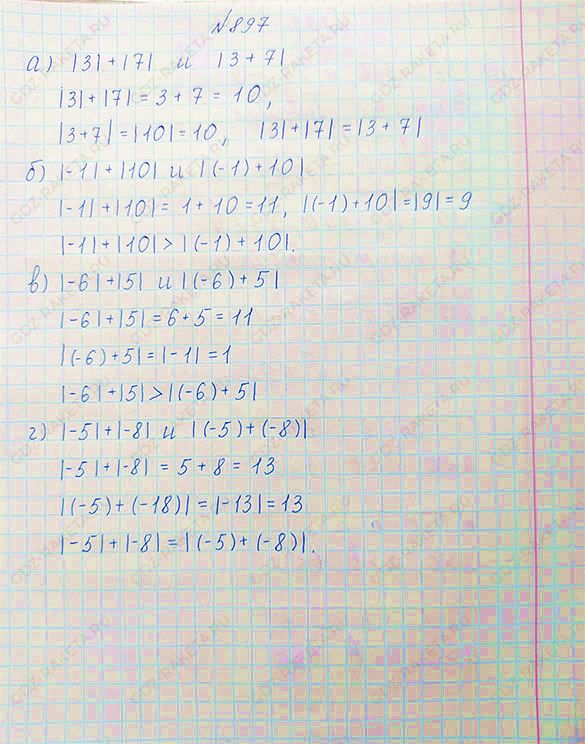 №897
а) |3|+|7| и |3+7|
|3|+|7|=3+7=10,
|3+7|=|10|=10, |3|+|7|=|3+7|
б) |-1|+|10| и |(-1)+10|
|-1|+|10|= 1+10=11, |(-1)+10|=|9|=9
|-1|+|10|>|(-1)+10|.
в) |-6|+|5| и |(-6)+5|
|-6|+|5|=6+5=11
|(-6)+5|=|-1|=1
|-6|+|5|>|(-6)+5|
г) |-5|+|-8| и |(-5)+(-8)|
|-5|+|-8| = 5+8 = 13
|(-5)+(-18)|=|-13|=13
|-5|+|-8|=|(-5)+(-8)|.
GDZ-RAKETA.RU